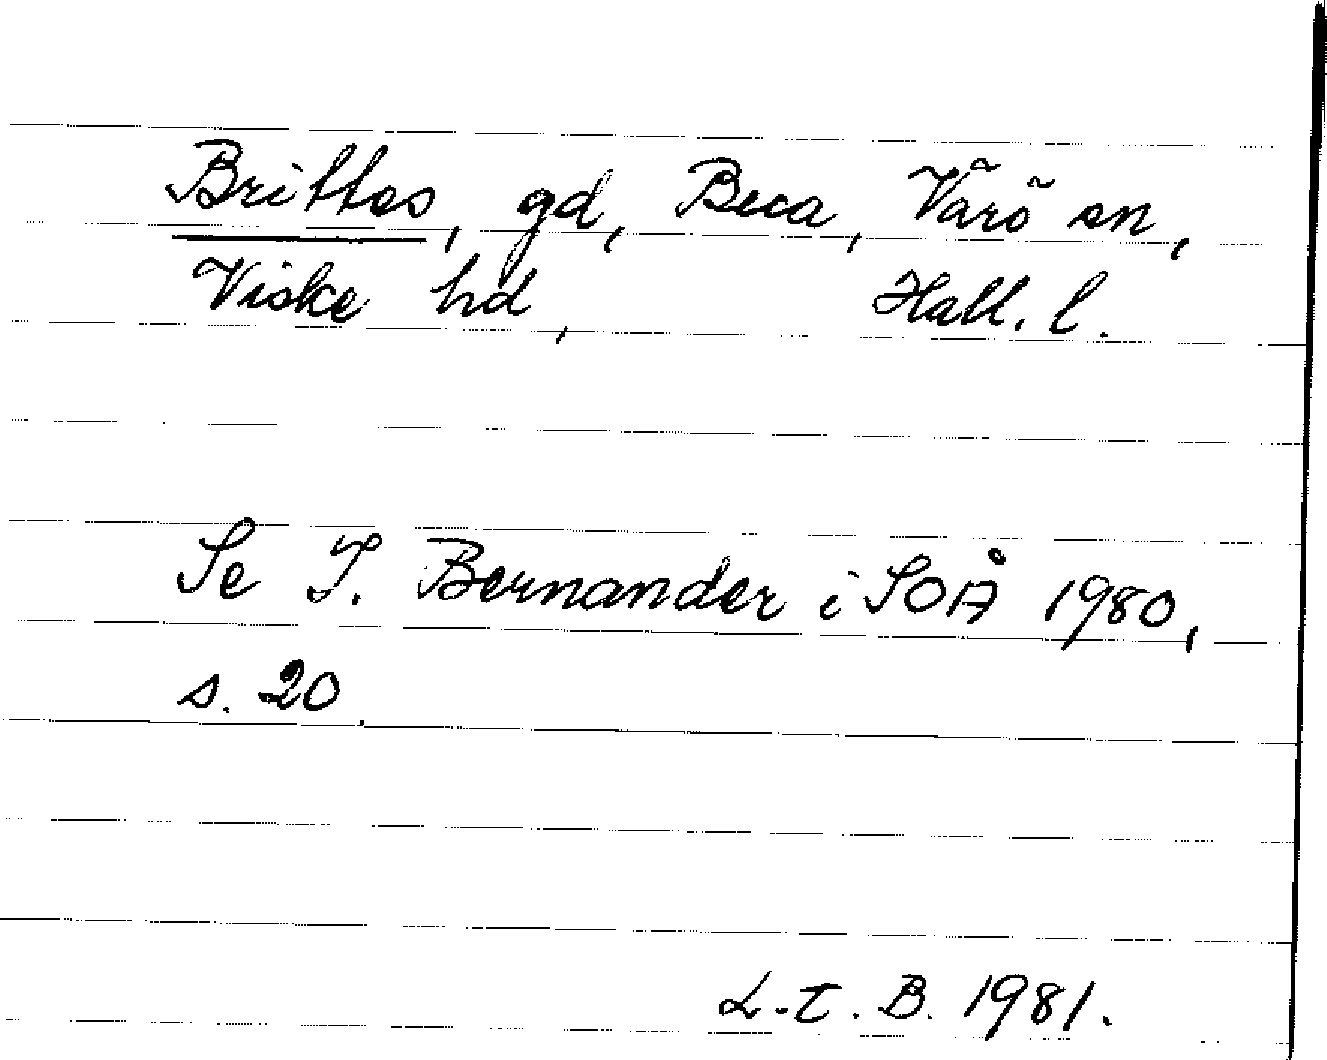 Brittas, gd, Bua, Värö sn,
Viske hd, Hall. l.
Se I. Bernander i SOÅ 1980,
s. 20.
L-E. B. 1981.